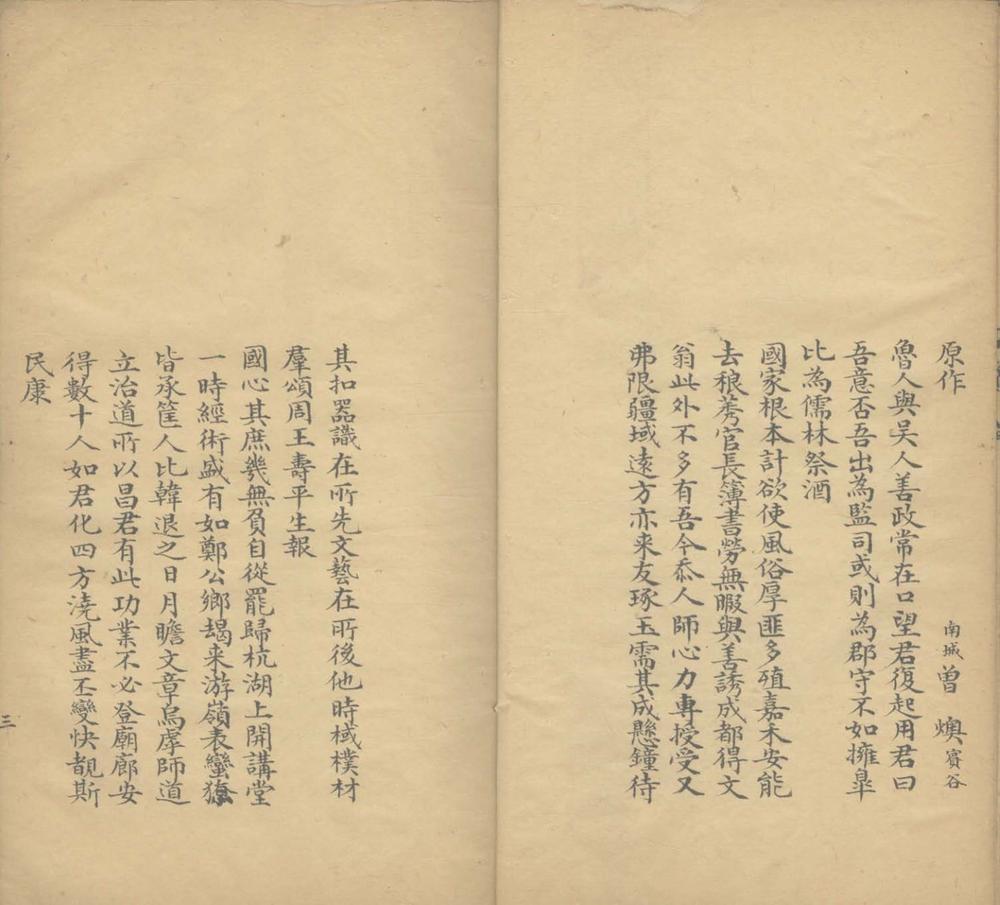 原作
南城曾燠賓谷
魯人與吴人善政常在口望君復起用君曰
吾意否吾出為監司或則為郡守不如擁臯
比為儒林祭酒
國家根本計欲使風俗厚匪多殖嘉禾安能
去稂莠官長簿書勞無暇與善誘成都得文
翁此外不多有吾今忝人師心力專授受又
弗限疆域遠方亦来友琢玉需其成懸鐘待
其扣器識在所先文藝在所後他時棫樸材
羣頌周王壽平生報
國心其庶幾無負自從罷歸杭湖上開講堂
一時經術盛有如鄭公鄉朅来游嶺表蠻猺
皆承筐人比韓退之日月瞻文章烏虖師道
立治道所以昌君有此功業不必登廟廊安
得數十人如君化四方澆風盡丕變快覩斯
民康
三